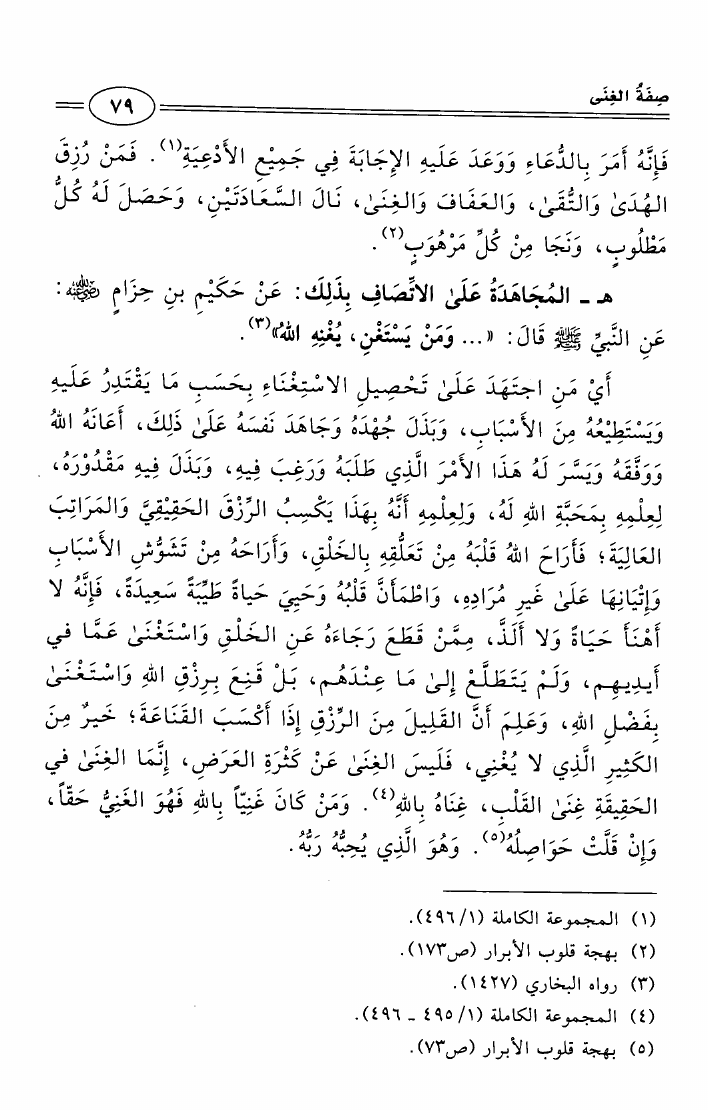 صِفَةُ الغِنَى
٧٩
فَإِنَّهُ أَمَرَ بِالدُّعَاءِ وَوَعَدَ عَلَيهِ الإِجَابَةَ فِي جَمِيْعِ الأَدْعِيَةِ(١). فَمَنْ رُزِقَ
الهُدَىٰ وَالتُّقَىٰ، وَالعَفَافَ وَالغِنَىٰ، نَالَ السَّعَادَتَيْنِ، وَحَصَلَ لَهُ كُلُّ
مَطْلُوبٍ، وَنَجَا مِنْ كُلِّ مَرْهُوَبٍ(٢).
هـ - المُجَاهَدَةُ عَلَىٰ الاتِّصَافِ بِذَلِكَ: عَنْ حَكِيْمِ بنِ حِزَامٍ رضي الله عنه:
عَنِ النَّبِيِّ ﷺ قَالَ: «... وَمَنْ يَسْتَغْنِ، يُغْنِهِ اللهُ»(٣).
أَيْ مَنِ اجتَهَدَ عَلَىٰ تَحْصِيلِ الاسْتِغْنَاءِ بِحَسَبِ مَا يَقْتَدِرُ عَلَيهِ
وَيَسْتَطِيْعُهُ مِنَ الأَسْبَابِ، وَبَذَلَ جُهْدَهُ وَجَاهَدَ نَفسَهُ عَلَىٰ ذَلِكَ، أَعَانَهُ اللهُ
وَوَفَّقَهُ وَيَسَّرَ لَهُ هَذَا الأَمْرَ الَّذِي طَلَبَهُ وَرَغِبَ فِيهِ، وَبَذَلَ فِيهِ مَقْدُوْرَهُ،
لِعِلْمِهِ بِمَحَبَّةِ اللهِ لَهُ، وَلِعِلْمِهِ أَنَّهُ بِهَذَا يَكْسِبُ الرِّزْقَ الحَقِيْقِيَّ وَالمَرَاتِبَ
العَالِيَةَ؛ فَأَرَاحَ اللهُ قَلْبَهُ مِنْ تَعَلُّقِهِ بِالخَلْقِ، وَأَرَاحَهُ مِنْ تَشَوُّشِ الأَسْبَابِ
وَإِتْيَانِهَا عَلَىٰ غَيرِ مُرَادِهِ، وَاطْمَأَنَّ قَلْبُهُ وَحَيِيَ حَياةً طَيِّبَةً سَعِيدَةً، فَإِنَّهُ لَا
أَهْنَأَ حَيَاةً وَلَا أَلَذَّ، مِمَّنْ قَطَعَ رَجَاءَهُ عَنِ الخَلْقِ وَاسْتَغْنَىٰ عَمَّا فِي
أَيدِيهِم، وَلَمْ يَتَطَلَّعْ إِلىٰ مَا عِنْدَهُم، بَلْ قَنِعَ بِرِزْقِ اللهِ وَاسْتَغْنَىٰ
بِفَضْلِ اللهِ، وَعَلِمَ أَنَّ القَلِيلَ مِنَ الرِّزْقِ إِذَا أَكْسَبَ القَنَاعَةَ؛ خَيرٌ مِنَ
الكَثِيرِ الَّذِي لَا يُغْنِي، فَلَيسَ الغِنَىٰ عَنْ كَثْرَةِ العَرَضِ، إِنَّمَا الغِنَىٰ فِي
الحَقِيقَةِ غِنَىٰ القَلْبِ، غِنَاهُ بِاللهِ(٤). وَمَنْ كَانَ غَنِيّاً بِاللهِ فَهُوَ الغَنِيُّ حَقّاً،
وَإِنْ قَلَّتْ حَوَاصِلُهُ(٥). وَهُوَ الَّذِي يُحِبُّهُ رَبُّهُ.
(١) المجموعة الكاملة (١/ ٤٩٦).
(٢) بهجة قلوب الأبرار (ص١٧٣).
(٣) رواه البخاري (١٤٢٧).
(٤) المجموعة الكاملة (١/ ٤٩٥ - ٤٩٦).
(٥) بهجة قلوب الأبرار (ص٧٣).